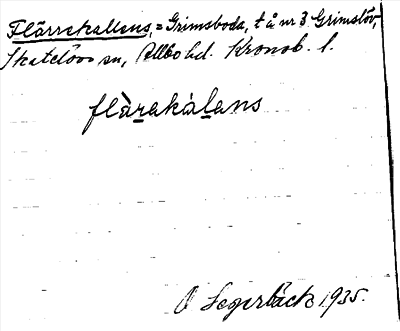 Flärrekallens, = Grimsboda, t å nr 3 Grimslöv,
Skatelövs sn, Allbo hd. Kronob. l.
flàrakàlans
O Segerbäck 1935.